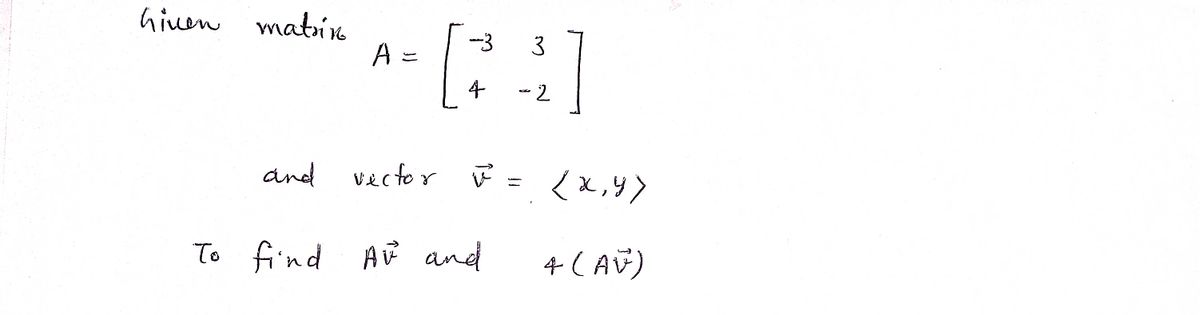 Given matrix
A = [ -3 3
4 -2 ]
and vector v⃗ = ⟨x,y⟩
To find Av⃗ and 4(Av⃗)